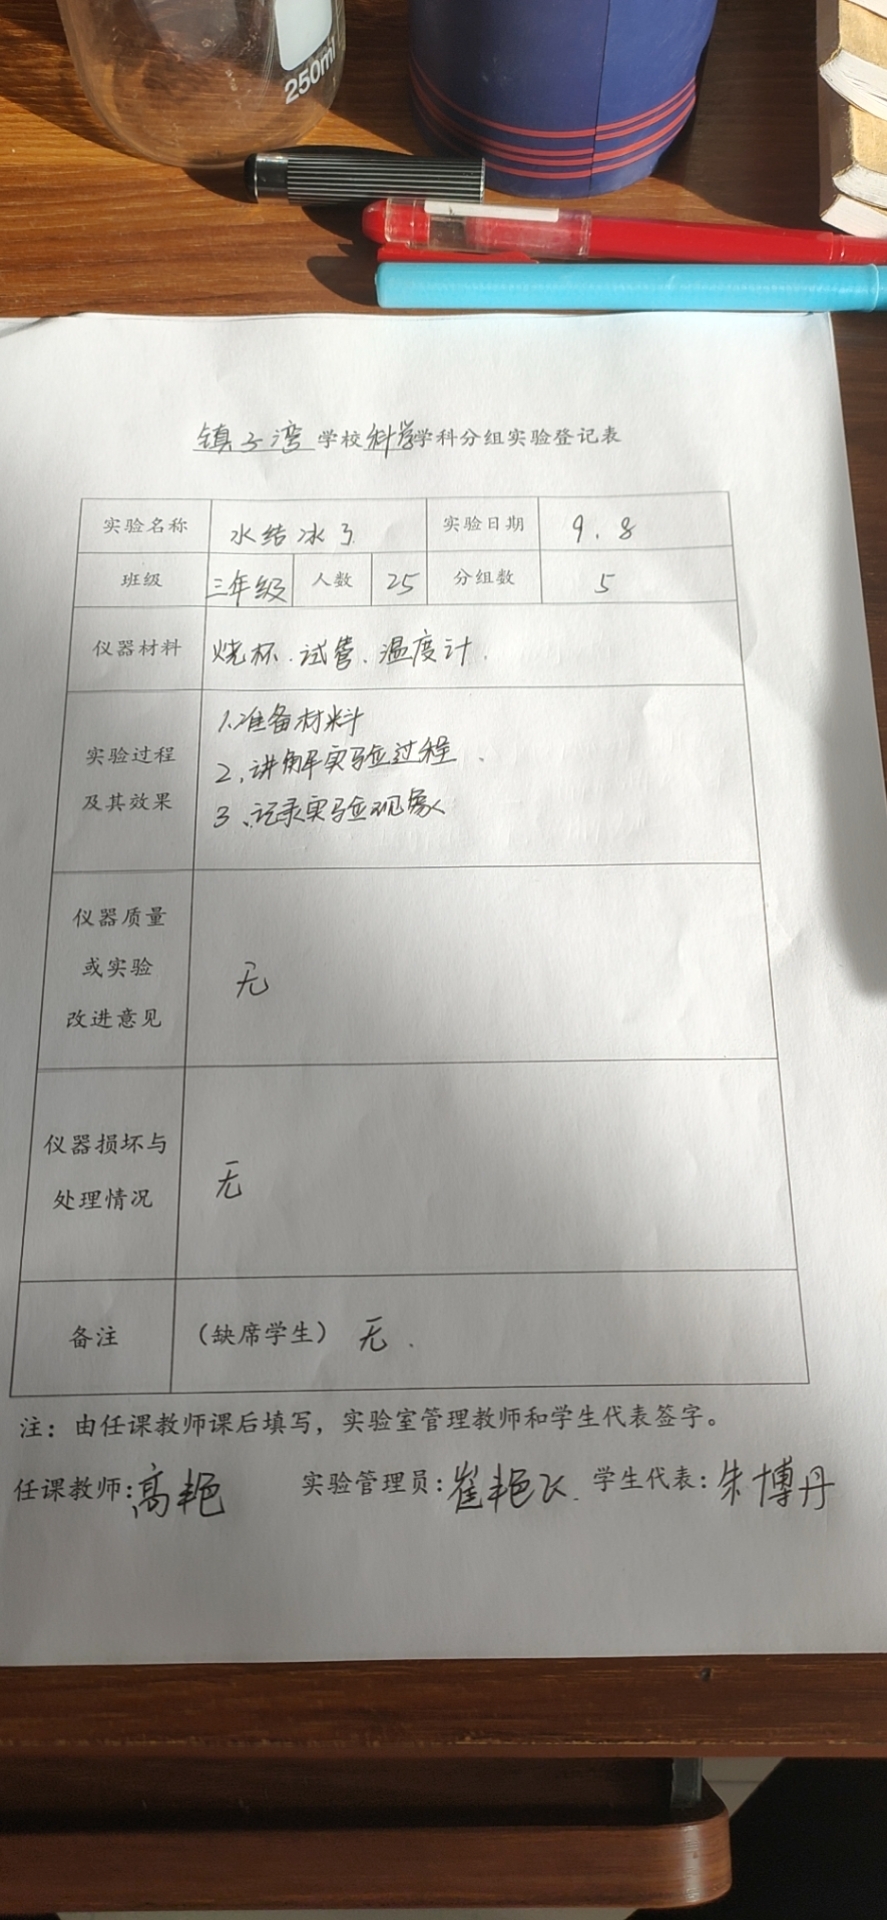 250ml
镇子湾学校科学学科分组实验登记表
实验名称 水结冰了 实验日期 9.8
班级 三年级 人数 25 分组数 5
仪器材料 烧杯.试管、温度计.
实验过程
及其效果
1.准备材料
2、讲解实验过程、
3、记录实验现象
仪器质量
或实验
改进意见
无
仪器损坏与
处理情况
无
备注 (缺席学生) 无.
注:由任课教师课后填写,实验室管理教师和学生代表签字。
任课教师:高艳 实验管理员:崔艳飞. 学生代表:朱博丹